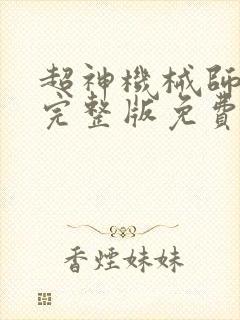 超神機械師
完整版免費
香煙妹妹